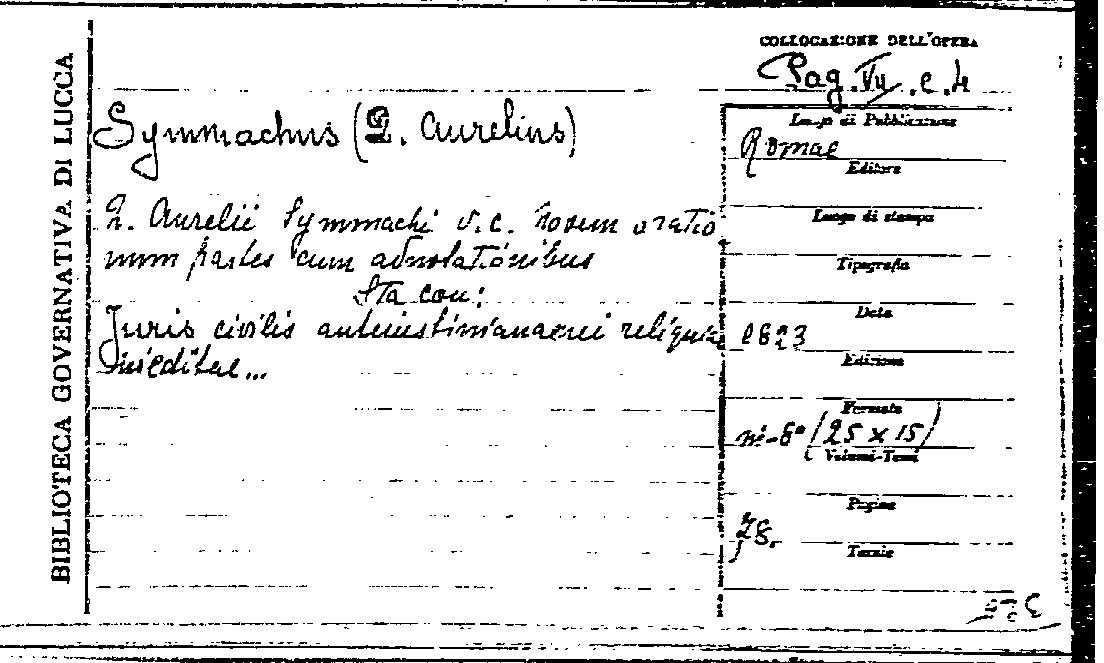 BIBLIOTECA GOVERNATIVA DI LUCCA
COLLOCAZIONE DELL'OPERA
Pag. VII. e. 4
Symmachus (Q. Aurelius)
Q. Aurelii Symmachi v.c. novem oratio
num partes cum adnotationibus
Sta con:
Juris civilis anteiustinianaei reliquiae
ineditae...
Luogo di Pubblicazione
Romae
Editore
Luogo di stampa
Tipografia
Data
1823
Edizione
Formato
in-8° (25 x 15)
Volumi-Tomi
Pagine
78.
Tavole